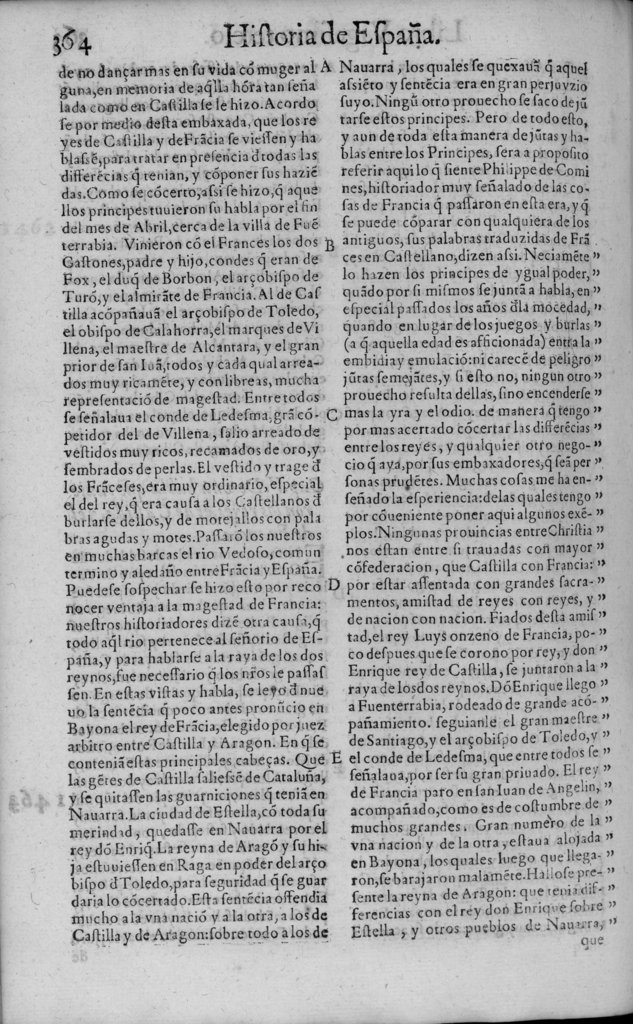 364
Historia de España.
de no dançar mas en su vida cõ muger al
guna, en memoria de aq̃lla hõra tan seña
lada como en Castilla se le hizo. Acordo
se por medio desta embaxada, que los re
yes de Castilla y de Frãcia se viessen y ha
blassẽ, para tratar en presencia d̃ todas las
differẽcias q̃ tenian, y cõponer sus haziẽ
das. Como se cõcerto, assi se hizo, q̃ aque
llos principes tuuieron su habla por el fin
del mes de Abril, cerca de la villa de Fuẽ
terrabia. Vinieron cõ el Frances los dos
Gastones, padre y hijo, condes q̃ eran de
Fox, el duq̃ de Borbon, el arçobispo de
Turõ, y el almirãte de Francia. Al de Cas
tilla acõpañauã el arçobispo de Toledo,
el obispo de Calahorra, el marques de Vi
llena, el maestre de Alcantara, y el gran
prior de san Iuã, todos y cada qual arrea-
dos muy ricamẽte, y con libreas, mucha
representaciõ de magestad. Entre todos
se señalaua el conde de Ledesma, grã cõ-
petidor del de Villena, salio arreado de
vestidos muy ricos, recamados de oro, y
sembrados de perlas. El vestido y trage d̃
los Frãceses, era muy ordinario, especial
el del rey, q̃ era causa a los Castellanos d̃
burlarse dellos, y de motejallos con pala
bras agudas y motes. Passarõ los nuestros
en muchas barcas el rio Vedoso, comun
termino y aledaño entre Frãcia y España.
Puedese sospechar se hizo esto por reco
nocer ventaja a la magestad de Francia:
nuestros historiadores dizẽ otra causa, q̃
todo aq̃l rio pertenece al señorio de Es-
paña, y para hablarse a la raya de los dos
reynos, fue necessario q̃ los nr̃os le passas
sen. En estas vistas y habla, se leyo d̃ nue
uo la sentẽcia q̃ poco antes pronũcio en
Bayona el rey de Frãcia, elegido por juez
arbitro entre Castilla y Aragon. En q̃ se
conteniã estas principales cabeças. Que
las gẽtes de Castilla saliessẽ de Cataluña,
y se quitassen las guarniciones q̃ teniã en
Nauarra. La ciudad de Estella, cõ toda su
merindad, quedasse en Nauarra por el
rey dõ Enriq̃. La reyna de Aragõ y su hi-
ja estuuiessen en Raga en poder del arço
bispo d̃ Toledo, para seguridad q̃ se guar
daria lo cõcertado. Esta sentẽcia offendia
mucho a la vna naciõ y a la otra, a los de
Castilla y de Aragon: sobre todo a los de
A
B
C
D
E
Nauarra, los quales se quexauã q̃ aquel
assiẽto y sentẽcia era en gran perjuyzio
suyo. Ningũ otro prouecho se saco de jũ
tarse estos principes. Pero de todo esto,
y aun de toda esta manera de jũtas y ha-
blas entre los Principes, sera a proposito
referir aqui lo q̃ siente Philippe de Comi
nes, historiador muy señalado de las co-
sas de Francia q̃ passaron en esta era, y q̃
se puede cõparar con qualquiera de los
antiguos, sus palabras traduzidas de Frã
ces en Castellano, dizen assi. Neciamẽte ”
lo hazen los principes de ygual poder, ”
quãdo por si mismos se juntã a habla, en ”
especial passados los años d̃la mocedad, ”
quando en lugar de los juegos y burlas ”
(a q̃ aquella edad es afficionada) entra la ”
embidia y emulaciõ: ni carecẽ de peligro ”
jũtas semejãtes, y si esto no, ningun otro ”
prouecho resulta dellas, sino encenderse ”
mas la yra y el odio. de manera q̃ tengo ”
por mas acertado cõcertar las differẽcias ”
entre los reyes, y qualquier otro nego- ”
cio q̃ aya, por sus embaxadores, q̃ seã per ”
sonas prudẽtes. Muchas cosas me ha en- ”
señado la esperiencia: de las quales tengo ”
por cõueniente poner aqui algunos exẽ- ”
plos. Ningunas prouincias entre Christia ”
nos estan entre si trauadas con mayor ”
cõfederacion, que Castilla con Francia: ”
por estar assentada con grandes sacra- ”
mentos, amistad de reyes con reyes, y ”
de nacion con nacion. Fiados desta amis ”
tad, el rey Luys onzeno de Francia, po- ”
co despues que se corono por rey, y don ”
Enrique rey de Castilla, se juntaron a la ”
raya de los dos reynos. Dõ Enrique llego ”
a Fuenterrabia, rodeado de grande acõ- ”
pañamiento. seguianle el gran maestre ”
de Santiago, y el arçobispo de Toledo, y ”
el conde de Ledesma, que entre todos se ”
señalaua, por ser su gran priuado. El rey ”
de Francia paro en san Iuan de Angelin, ”
acompañado, como es de costumbre de ”
muchos grandes. Gran numero de la ”
vna nacion y de la otra, estaua alojada ”
en Bayona, los quales luego que llega- ”
ron, se barajaron malamẽte. Hallose pre- ”
sente la reyna de Aragon: que tenia dif- ”
ferencias con el rey don Enrique sobre ”
Estella, y otros pueblos de Nauarra, ”
que